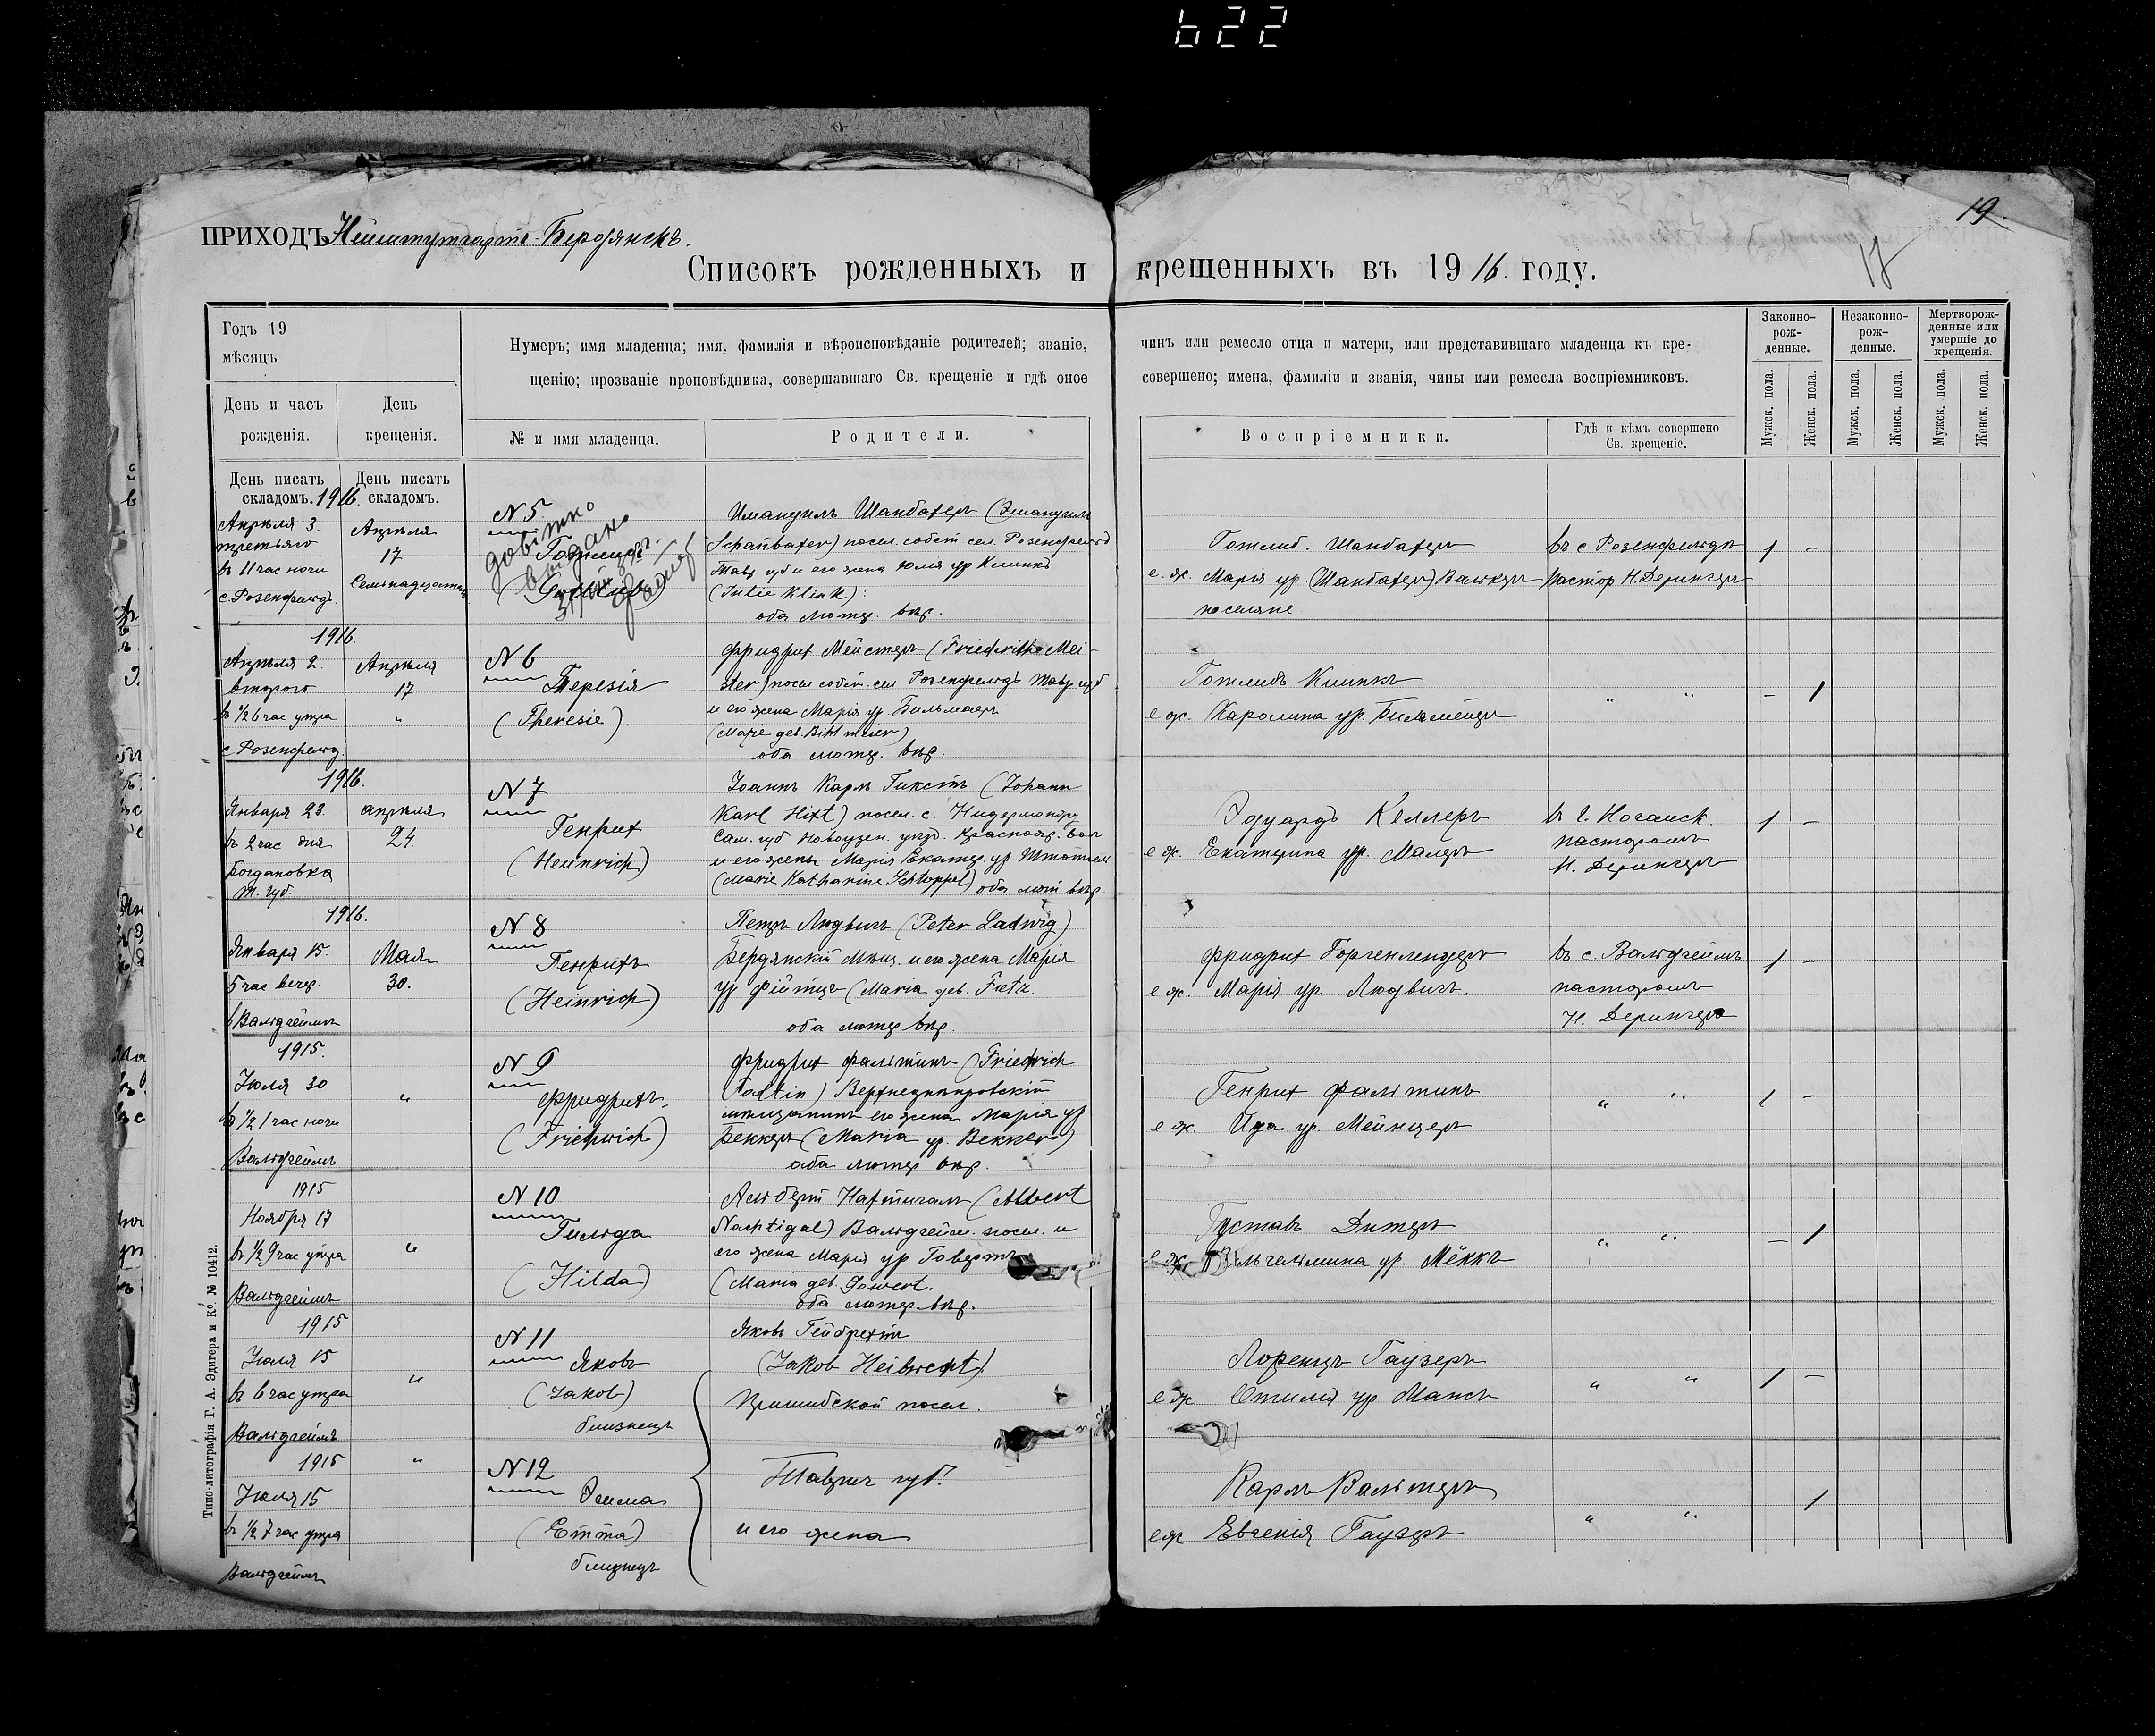 622
19.
17
ПРИХОДЪ Нейштутгартъ-Бердянскъ.
Списокъ рожденныхъ и крещенныхъ въ 1916. году.
Годъ 19
мѣсяцъ
День и часъ рожденія.
День крещенія.
Нумеръ; имя младенца; имя, фамилія и вѣроисповѣданіе родителей; званіе, чинъ или ремесло отца и матери, или представившаго младенца къ кре-
щенію; прозваніе проповѣдника, совершавшаго Св. крещеніе и гдѣ оное совершено; имена, фамиліи и званія, чины или ремесла воспріемниковъ.
№ и имя младенца.
Родители.
Воспріемники.
Гдѣ и кѣмъ совершено
Св. крещеніе.
Законно-
рож-
денные.
Незаконно-
рож-
денные.
Мертворож-
денные или
умершіе до
крещенія.
Мужск. пола.
Женск. пола.
Мужск. пола.
Женск. пола.
Мужск. пола.
Женск. пола.
День писать
складомъ.
День писать
складомъ.
1916.
Апрѣля 3.
третьяго
въ 11 час ночи
с. Розенфельд
Апрѣля
17
Семьнадцатаго
N 5
Готлибъ.
(Gottlieb)
Имануилъ Шанбахеръ (Эмануилъ
Schanbaxer) посел. собст сел. Розенфельд
Тавр губ и его жена Юлія ур Клинкъ
(Julie Klink):
оба лютер. вѣр.
Готлиб. Шанбахеръ
е. ж. Марія ур. (Шанбахеръ) Валкеръ
поселяне
въ с Розенфельдъ
Пастор Н. Дерингеръ
1 –
1916.
Апрѣля 2.
второго
въ ½ 6 час утра
с Розенфельд.
Апрѣля
17
"
N 6
Терезія
(Theresie)
Фридрих Мейстеръ (Friedrich Mei-
ster) посел собст. сел Розенфельдъ Тавр губ
и его жена Марія ур. Бильмаеръ
оба лютер. вѣр.
Готлибъ Клинкъ
е ж. Каролина ур. Бильмейеръ
" "
– 1
1916.
Января 23.
въ 2 час дня
Богдановка
Т. губ.
апрѣля
24.
N 7
Генрих
(Heinrich)
Іоаннъ Карлъ Гикстъ (Johann
Karl Hixt) посел. с. Нидермонжу
Сам. губ Новоузен. уѣзд. Краснояр. вол
и его жены Марія Екатер. ур Штоппель
(Marie Katharine Schtoppel) оба лют вѣр.
Эдуардъ Келлеръ
е ж. Екатерина ур. Малеръ
въ г. Ногайск.
пасторомъ
Н. Дерингеръ
1 –
1916.
Января 15.
5 час вечер.
в Вальдгеймъ
Мая
30.
N 8
Генрихъ
(Heinrich)
Петръ Людвигъ (Peter Ladwig)
Бердянскій Мѣщ. и его жена Марія
ур Фитцъ (Maria geb. Fietz.
оба лютер вѣр.
Фридрих Горгенлендеръ
е ж. Марія ур. Людвигъ.
въ с. Вальдгеймъ
пасторомъ
Н. Дерингеръ
1 –
1915.
Іюля 30
въ ½ 1 час ночи
Вальдгеймъ
"
N 9
Фридрихъ.
(Friedrich)
Фридрих Фальтинъ (Friedrich
Faltin) Верхнеднѣпровскій
мѣщанинъ его жена Марія ур
Беккеръ (Maria ур. Bekker)
оба лютер вѣр.
Генрих Фальтинъ
е ж. Ида ур. Мейнцеръ
" "
1 –
1915
Ноября 17
въ ½ 9 час утра
Вальдгеймъ
"
N 10
Гильда
(Hilda)
Альберт Нахтигаль (Albert
Nachtigal) Вальдгейм. посел. и
его жена Марія ур Говертъ
(Maria geb. Gowert.
оба лютер вѣр.
Густавъ Дитеръ
е ж. Вильгельмина ур. Мёккъ
" "
– 1
1915
Іюля 15
въ 6 час утра
Вальдгеймъ
"
N 11
Яковъ
(Jakob)
близнецъ
Яковъ Гейбрехтъ
(Jakob Heibrecht)
Пришибской посел.
Лоренцъ Гаузеръ
е ж Отилія ур Мансъ
" "
1 –
1915
Іюля 15
въ ½ 7 час утра
Вальдгеймъ
"
N 12
Эмма
(Emma)
близнецъ
Таврич губ.
и его жена
Карлъ Вальтеръ
е ж Евгенія Гаузеръ
" "
1
Типо-литографія Г. А. Эдигера и Ко. № 10412.